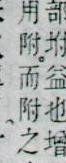 部坿益也增
用附。而附之